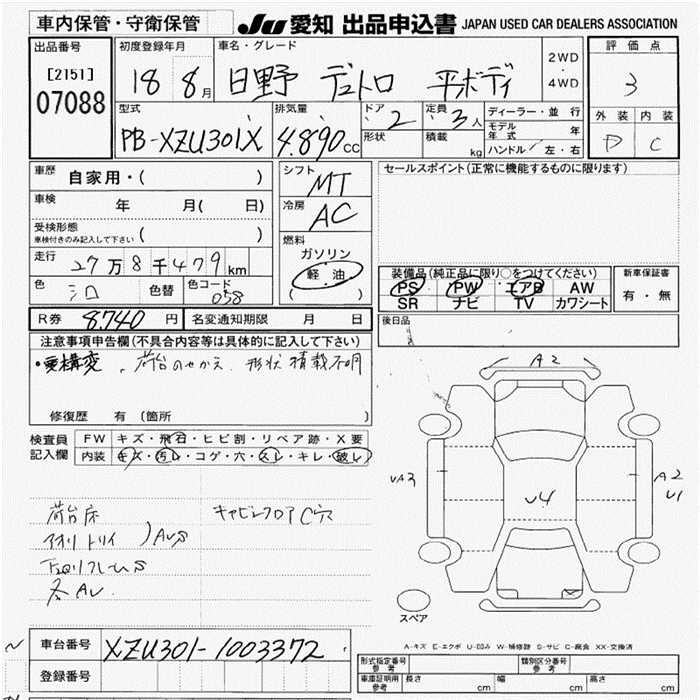 車内保管・守衛保管
JU 愛知 出品申込書 JAPAN USED CAR DEALERS ASSOCIATION
出品番号
[2151]
07088
初度登録年月
18 8月
車名・グレード
日野 デュトロ 平ボディ
2WD
・
4WD
評価点
3
外装 内装
D C
型式
PB-XZU301X
排気量
4.890cc
ドア 2
形状
定員 3人
積載 kg
ディーラー・並行
モデル年式 年
ハンドル 左・右
車歴 自家用・( )
車検 年 月( 日)
受検形態
車検付きのみ記入して下さい ( )
走行 27万8千479km
色 シロ 色替 色コード 058
シフト MT
冷房 AC
燃料
ガソリン
軽油
( )
セールスポイント(正常に機能するものに限ります)
装備品(純正品に限り○をつけてください)
PS PW エアB AW
SR ナビ TV カワシート
新車保証書
有・無
R券 8.740円 名変通知期限 月 日
後日品
注意事項申告欄(不具合内容等は具体的に記入して下さい)
・要構変、荷台のせかえ 形状積載不明
修復歴 有 (箇所 )
検査員
記入欄
FW キズ・飛石・ヒビ割・リペア跡・X要
内装 キズ・汚レ・コゲ・穴・スレ・キレ・破レ
荷台床
アオリ トリイ )AUS
下回りフレームS
各AU
キャビンフロアC穴
A2
UA3
U4
A2
U1
スペア
A-キズ E-エクボ U-凹み W-補修跡 S-サビ C-腐食 XX-交換済
車台番号 XZU301-1003372
登録番号
形式指定番号
参考
類別区分番号
参考
車庫証明用
参考
長さ cm 幅 cm 高さ cm